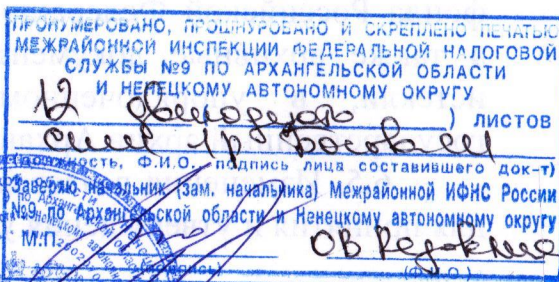 ПРОНУМЕРОВАНО, ПРОШНУРОВАНО И СКРЕПЛЕНО ПЕЧАТЬЮ
МЕЖРАЙОННОЙ ИНСПЕКЦИИ ФЕДЕРАЛЬНОЙ НАЛОГОВОЙ
СЛУЖБЫ №9 ПО АРХАНГЕЛЬСКОЙ ОБЛАСТИ
И НЕНЕЦКОМУ АВТОНОМНОМУ ОКРУГУ
12 ) ЛИСТОВ
(должность, Ф.И.О., подпись лица составившего док-т)
Заверяю начальник (зам. начальника) Межрайонной ИФНС России
№9 по Архангельской области и Ненецкому автономному округу
М.П. ОВ
(подпись) (Ф.И.О.)